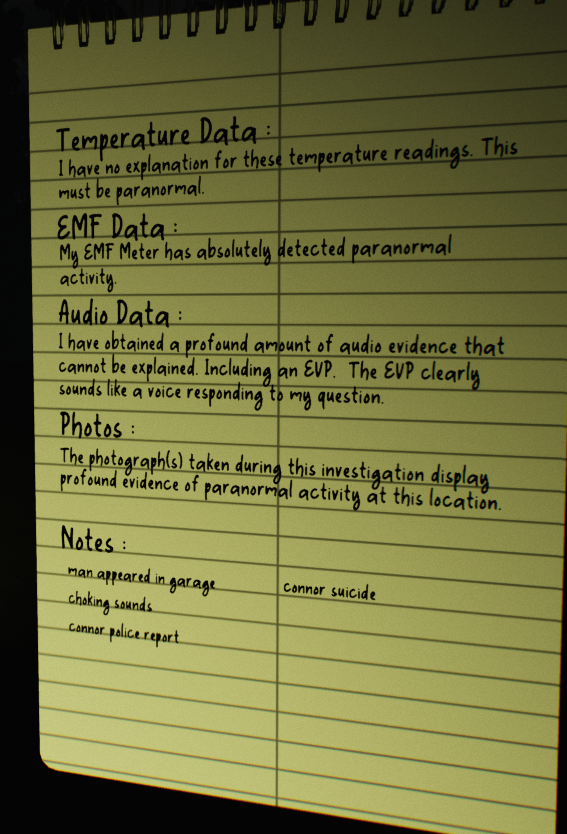 Temperature Data :
I have no explanation for these temperature readings. This
must be paranormal.
EMF Data :
My EMF Meter has absolutely detected paranormal
activity.
Audio Data :
I have obtained a profound amount of audio evidence that
cannot be explained. Including an EVP. The EVP clearly
sounds like a voice responding to my question.
Photos :
The photograph(s) taken during this investigation display
profound evidence of paranormal activity at this location.
Notes :
man appeared in garage
connor suicide
choking sounds
connor police report